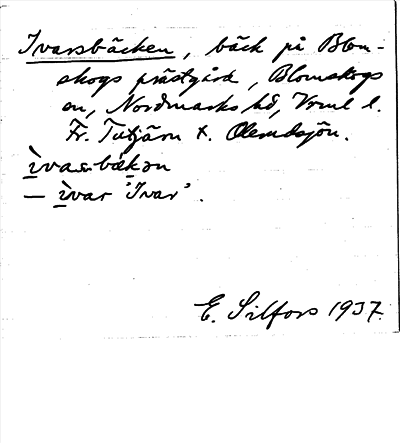 Ivarsbäcken, bäck på Blom-
skogs prästgård, Blomskogs
sn, Nordmarks hd, Vrml l.
Fr. Tutjärn t. Olemdsjön.
ìvasbäkən
— ìvar 'Ivar'.
E. Silfors 1937.